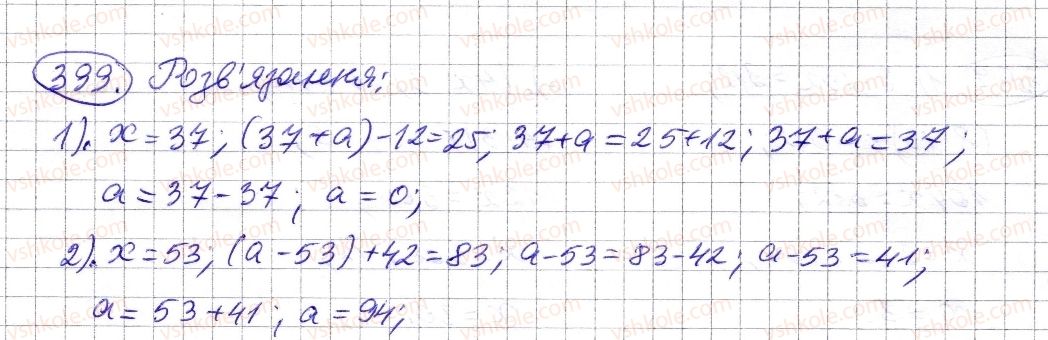 399. Розв'язання:
1). x = 37; (37+a)-12=25; 37+a=25+12; 37+a=37;
a=37-37; a=0;
2). x=53; (a-53)+42=83; a-53=83-42; a-53=41;
a=53+41; a=94;